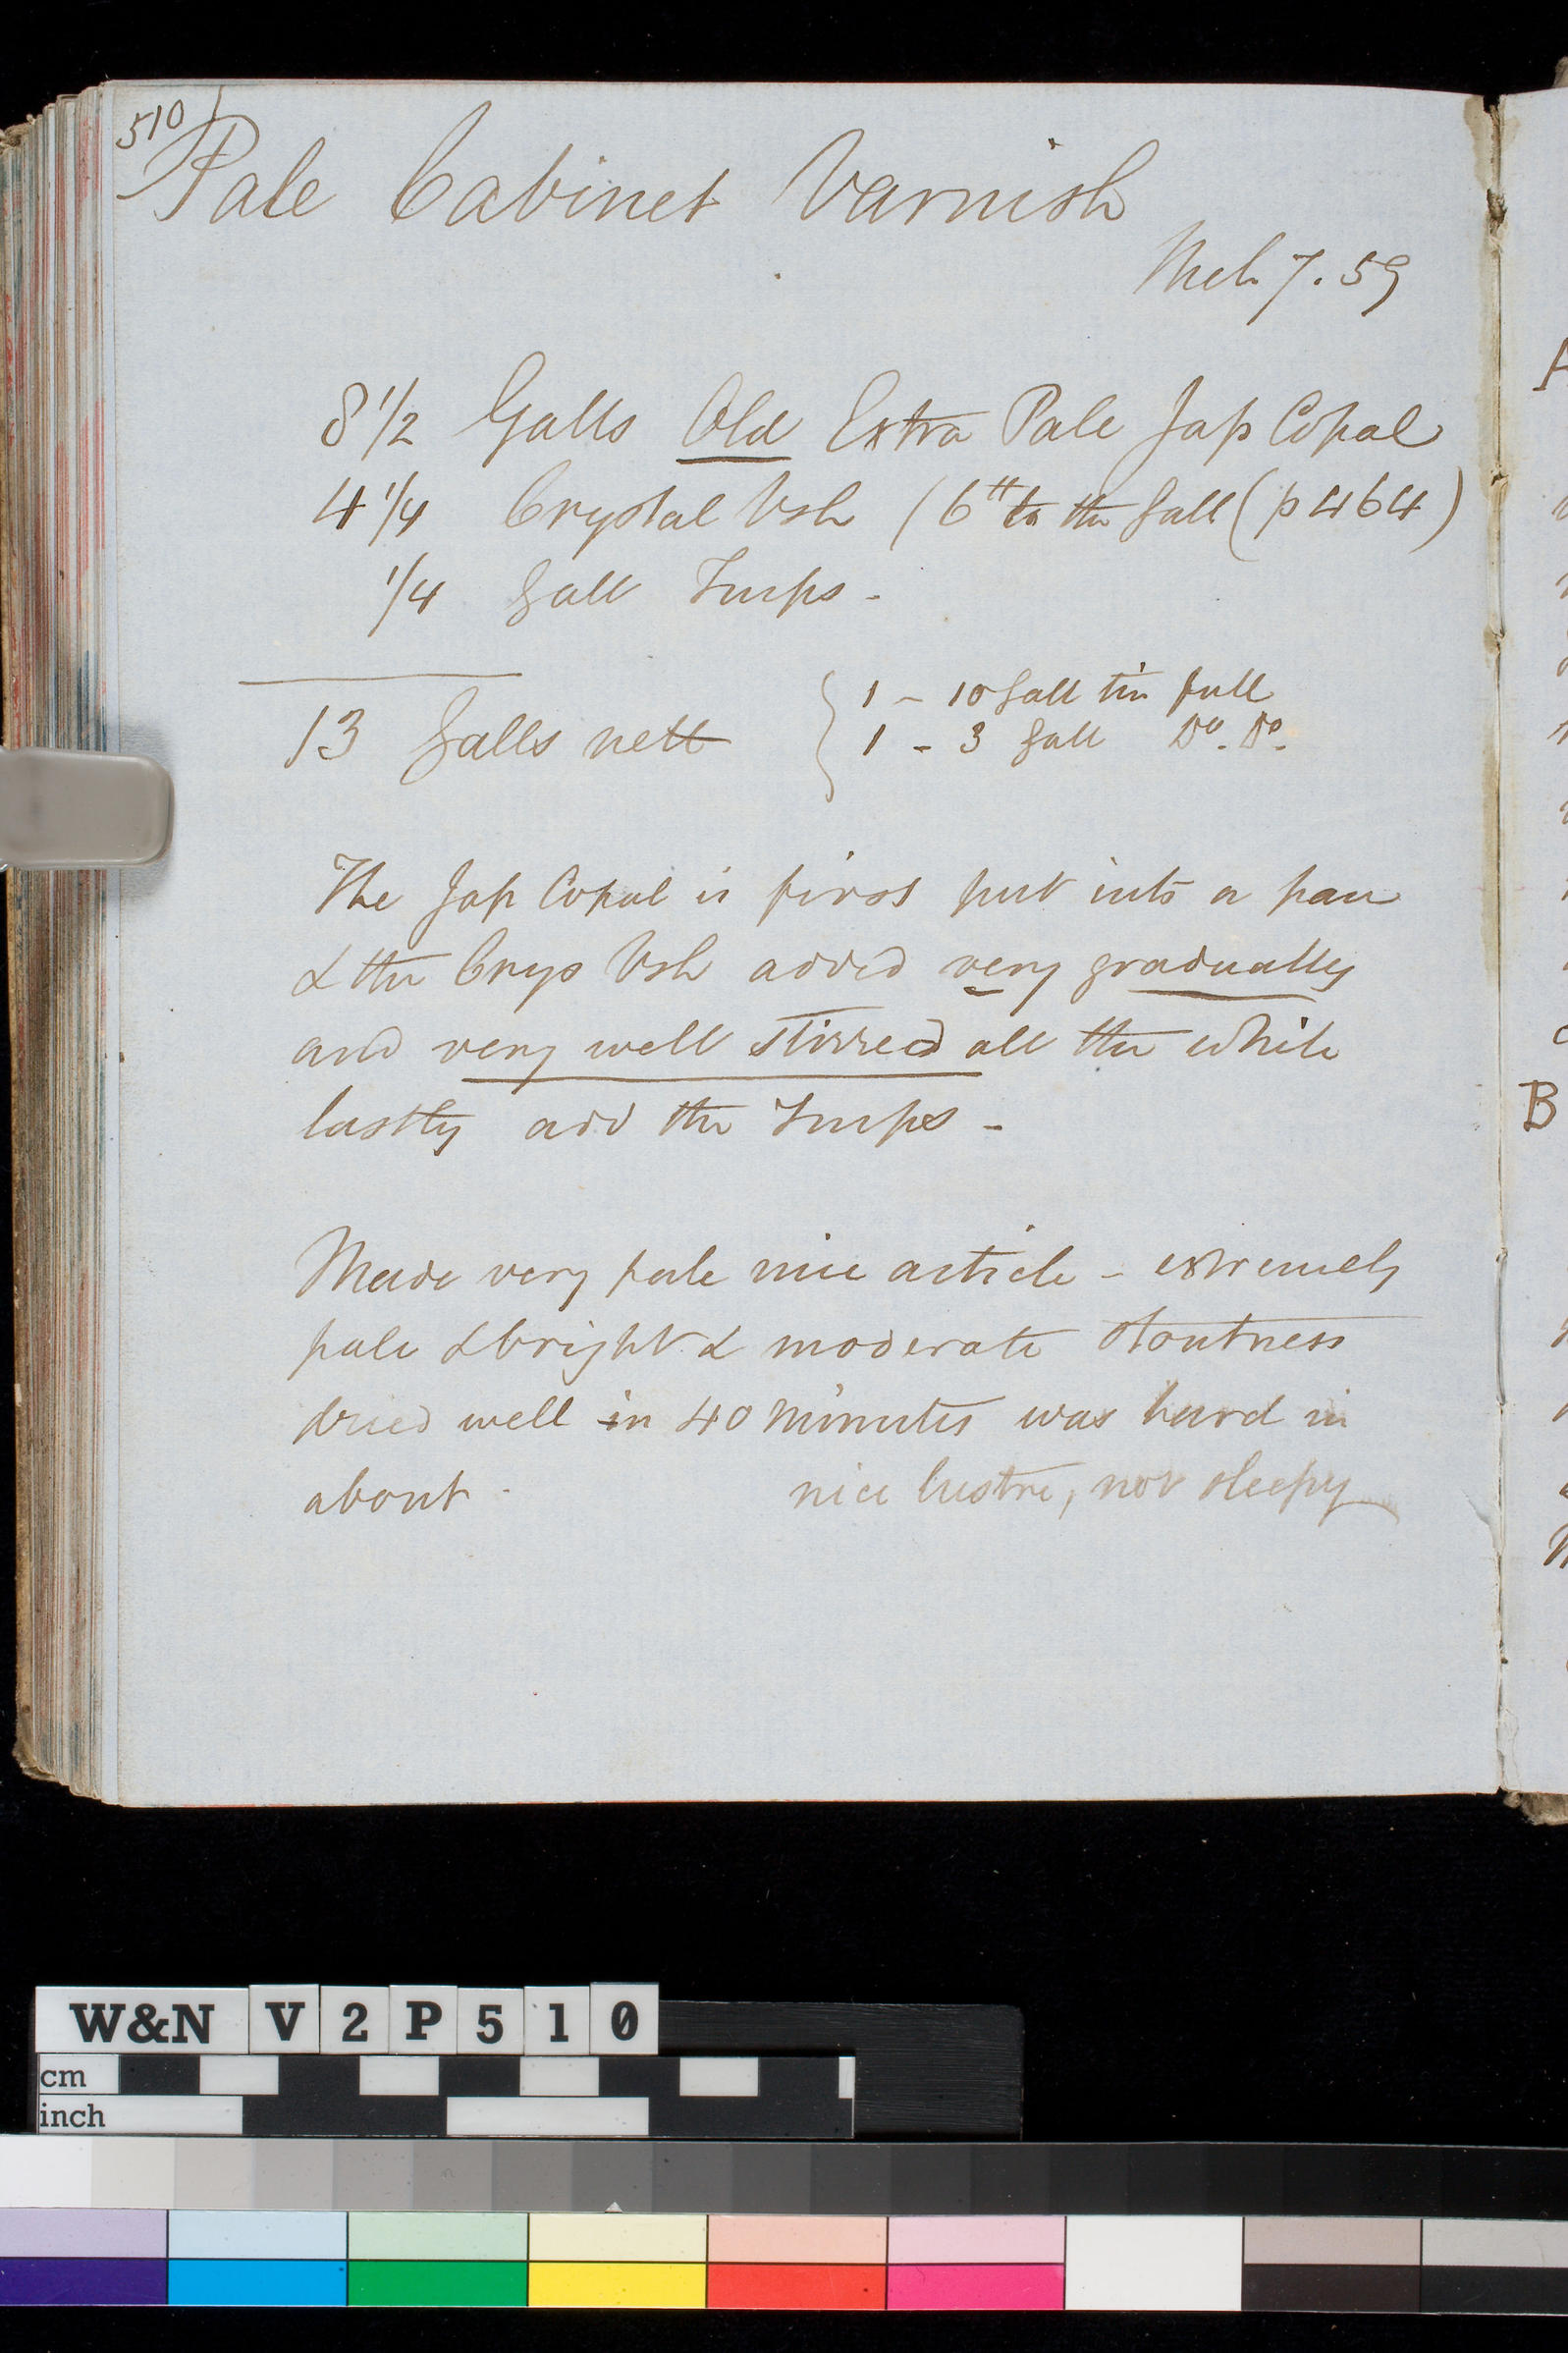 510
Pale Cabinet Varnish
Mch 7. 59
8 1/2 Galls Old Extra Pale Jap Copal
4 1/4 Crystal Vsh (6 lb to the Gall (p 464)
1/4 Gall Turps -
13 Galls nett
1 - 10 Gall tin full
1 - 3 Gall Do. Do.
The Jap Copal is first put into a pan
& the Crys Vsh added very gradually
and very well stirred all the while
lastly add the Turps -
Made very pale nice article - extremely
pale & bright & moderate stoutness
dried well in 40 minutes was hard in
about nice lustre, not sleepy
B
W&N V2P510
cm
inch